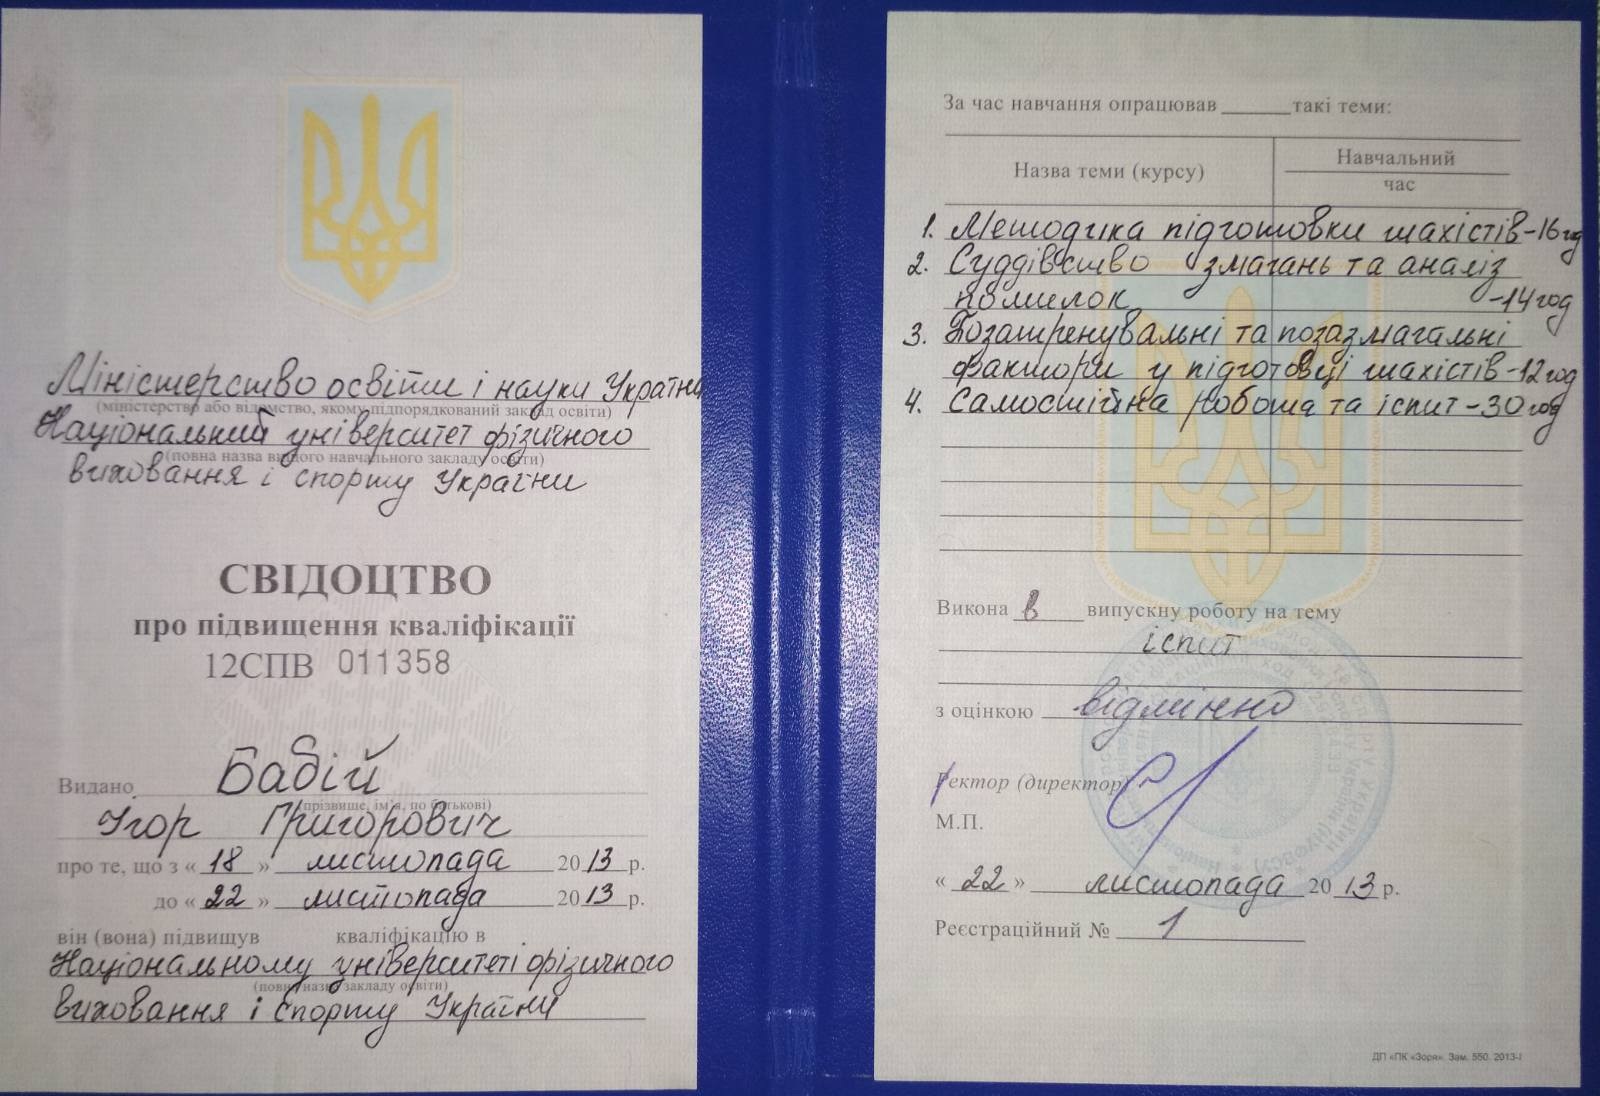 Міністерство освіти і науки України
(міністерство або відомство, якому підпорядкований заклад освіти)
Національний університет фізичного
(повна назва вищого навчального закладу освіти)
виховання і спорту України
СВІДОЦТВО
про підвищення кваліфікації
12СПВ 011358
Видано Бабій
(прізвище, ім'я, по батькові)
Ігор Григорович
про те, що з « 18 » листопада 20 13 р.
до « 22 » листопада 20 13 р.
він (вона) підвищув кваліфікацію в
Національному університеті фізичного
(повна назва закладу освіти)
виховання і спорту України
За час навчання опрацював ______ такі теми:
Назва теми (курсу)
Навчальний
час
1. Методика підготовки шахістів-16год
2. Суддівство змагань та аналіз
помилок -14год
3. Позатренувальні та позазмагальні
фактори у підготовці шахістів-12год
4. Самостійна робота та іспит-30год
Викона в випускну роботу на тему
іспит
з оцінкою відмінно
Ректор (директор)
М.П.
« 22 » листопада 20 13 р.
Реєстраційний № 1
ДП «ПК «Зоря». Зам. 550. 2013-І